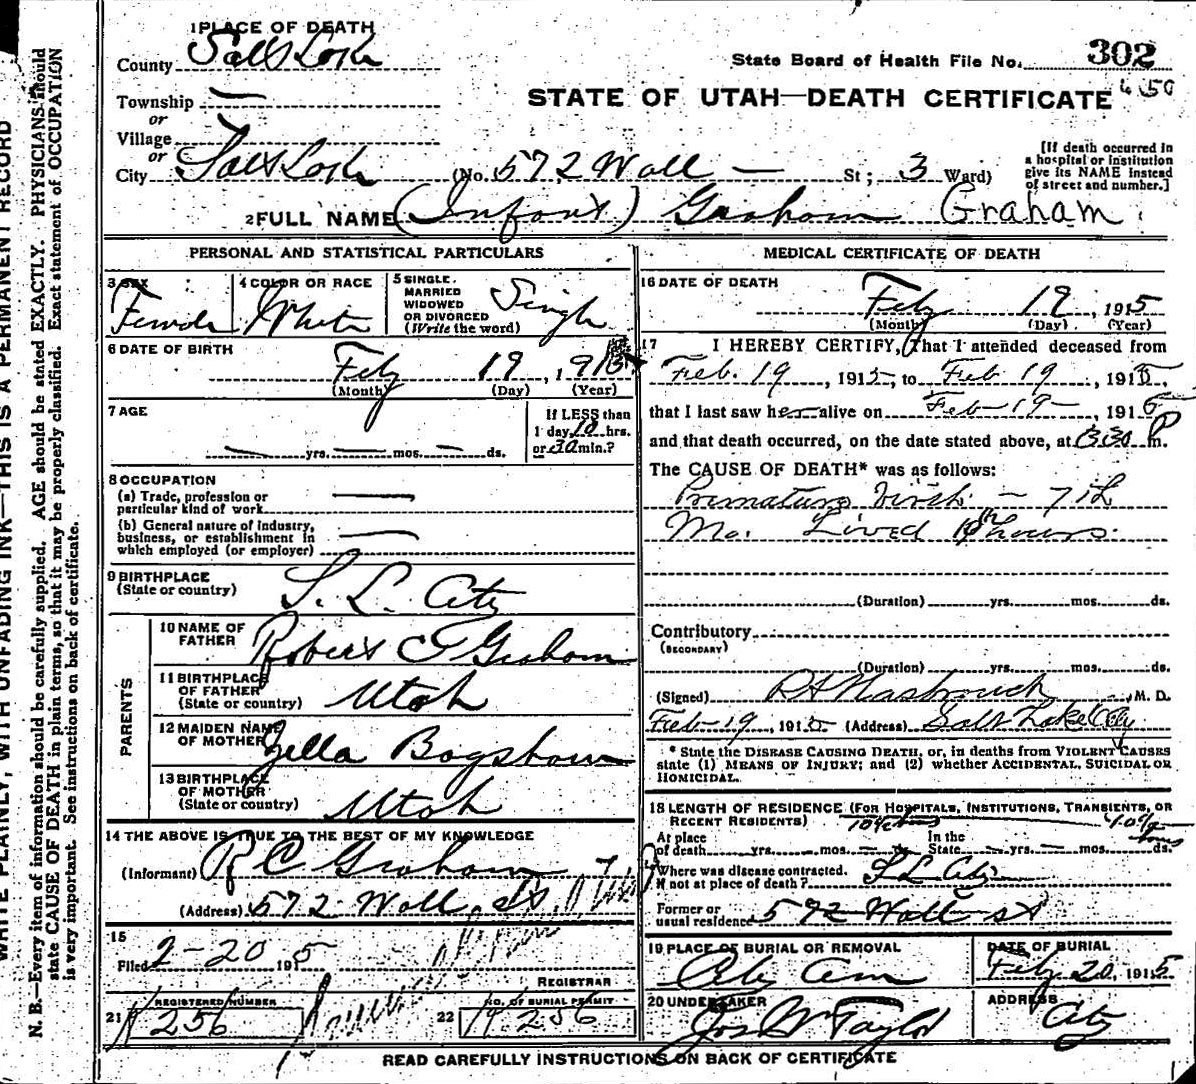 1 PLACE OF DEATH
County Salt Lake
State Board of Health File No. 302
STATE OF UTAH—DEATH CERTIFICATE
Township —
or
Village
or
City Salt Lake (No. 572 Wall — St; 3 Ward)
[If death occurred in
a hospital or institution
give its NAME instead
of street and number.]
2 FULL NAME (Infant) Graham Graham
PERSONAL AND STATISTICAL PARTICULARS
3 SEX Female
4 COLOR OR RACE White
5 SINGLE, MARRIED WIDOWED OR DIVORCED (Write the word) Single
6 DATE OF BIRTH
Feby 19, 1915
(Month) (Day) (Year)
7 AGE
— yrs. — mos. — ds.
If LESS than
1 day, 10 hrs.
or 30 min.?
8 OCCUPATION
(a) Trade, profession or
particular kind of work —
(b) General nature of industry,
business, or establishment in
which employed (or employer) —
9 BIRTHPLACE
(State or country) S. L. City
PARENTS
10 NAME OF
FATHER Robert C Graham
11 BIRTHPLACE
OF FATHER
(State or country) Utah
12 MAIDEN NAME
OF MOTHER Zella Bagshaw
13 BIRTHPLACE
OF MOTHER
(State or country) Utah
14 THE ABOVE IS TRUE TO THE BEST OF MY KNOWLEDGE
(Informant) R C Graham
(Address) 572 Wall St
15
Filed 2-20 1915
REGISTRAR
21 REGISTERED NUMBER 256
22 NO. OF BURIAL PERMIT 256
MEDICAL CERTIFICATE OF DEATH
16 DATE OF DEATH
Feby 19, 1915
(Month) (Day) (Year)
17 I HEREBY CERTIFY, That I attended deceased from
Feb. 19, 1915, to Feb 19, 1915,
that I last saw her alive on Feb 19, 1915
and that death occurred, on the date stated above, at 3:30 P m.
The CAUSE OF DEATH* was as follows:
Premature birth — 7th
Mo. Lived hours.
(Duration) yrs. mos. ds.
Contributory
(SECONDARY)
(Duration) yrs. mos. ds.
(Signed) M. D.
Feb 19, 1915 (Address) Salt Lake City
* State the DISEASE CAUSING DEATH, or, in deaths from VIOLENT CAUSES
state (1) MEANS OF INJURY; and (2) whether ACCIDENTAL, SUICIDAL OR
HOMICIDAL.
18 LENGTH OF RESIDENCE (FOR HOSPITALS, INSTITUTIONS, TRANSIENTS, OR
RECENT RESIDENTS)
At place
of death yrs. mos. ds.
In the
State yrs. mos. ds.
Where was disease contracted.
if not at place of death? S L City
Former or
usual residence 572 Wall St
19 PLACE OF BURIAL OR REMOVAL City Cem
DATE OF BURIAL Feby 20, 1915
20 UNDERTAKER Jos W Taylor
ADDRESS City
READ CAREFULLY INSTRUCTIONS ON BACK OF CERTIFICATE
WRITE PLAINLY, WITH UNFADING INK—THIS IS A PERMANENT RECORD
N. B.—Every item of information should be carefully supplied. AGE should be stated EXACTLY. PHYSICIANS should
state CAUSE OF DEATH in plain terms, so that it may be properly classified. Exact statement of OCCUPATION
is very important. See instructions on back of certificate.